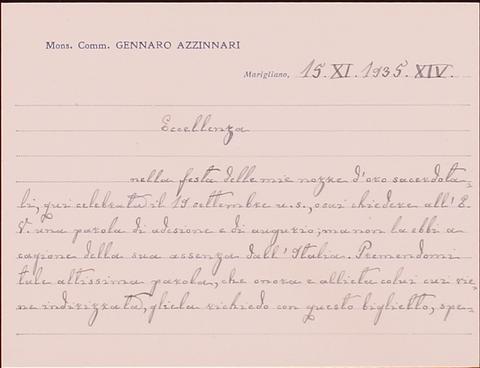 Mons. Comm. GENNARO AZZINNARI
Marigliano, 15. XI. 1935. XIV.
Eccellenza
nella festa delle mie nozze d'oro sacerdota-
li, qui celebrate il 19 settembre u. s., osai chiedere all' E.
V. una parola di adesione e di augurio; ma non la ebbi a
cagione della sua assenza dall' Italia. Premendomi
tale altissima parola, che onora e allieta colui cui vie-
ne indirizzata, gliela richiedo con questo biglietto, spe-